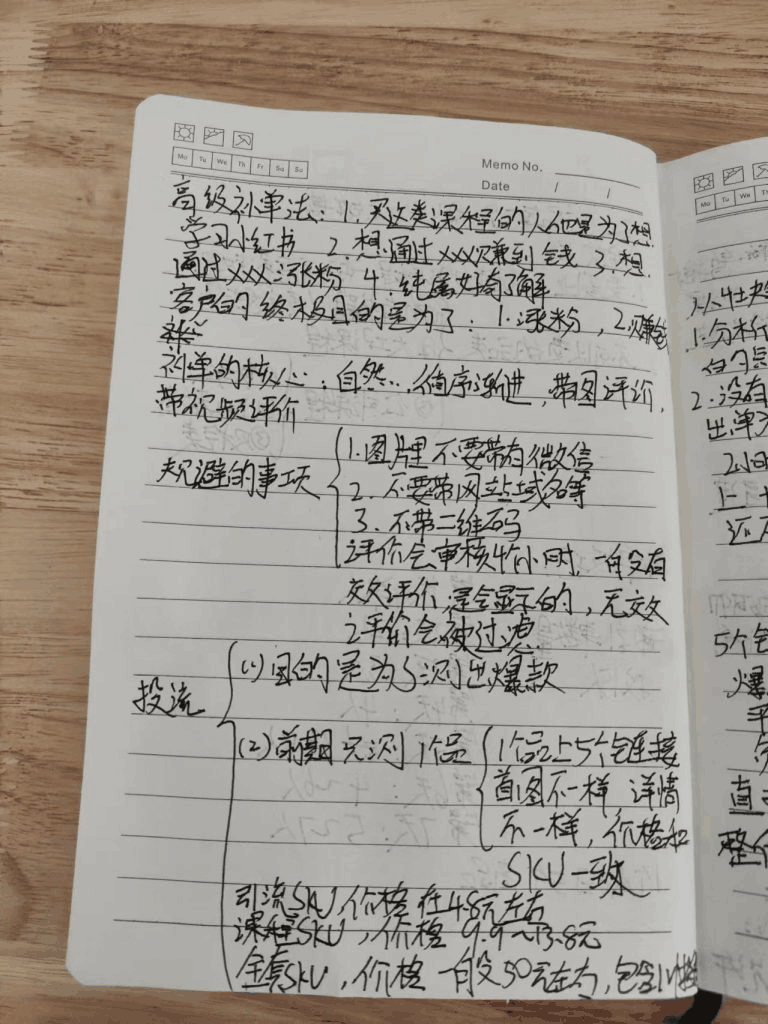 Memo No.
Date / /
Mo Tu We Th Fr Sa Su
高级补单法：1. 买这类课程的人他是为了想
学习小红书 2. 想通过XXX赚到钱 3. 想
通过XXX涨粉 4. 纯属好奇了解
客户的终极目的是为了：1. 涨粉，2. 赚钱
补单的核心：自然，循序渐进，带图评价，
带视频评价
规避的事项
1. 图片里不要带有微信
2. 不要带网站域名等
3. 不带二维码
评价会审核4个小时，一般没有
效评价，是会显示的，无效
评价会被过滤
投流
(1) 目的是为了测出爆款
(2) 前期先测1个品
1个品上5个链接
首图不一样 详情
不一样，价格和
SKU一致
引流SKU，价格在4.8元左右
课程SKU，价格9.9～13.8元
全套SKU，价格一般50元左右，包含
Mo Tu We Th
1. 分析
2. 没有
出单
2小时
还
5个
爆
直
整个